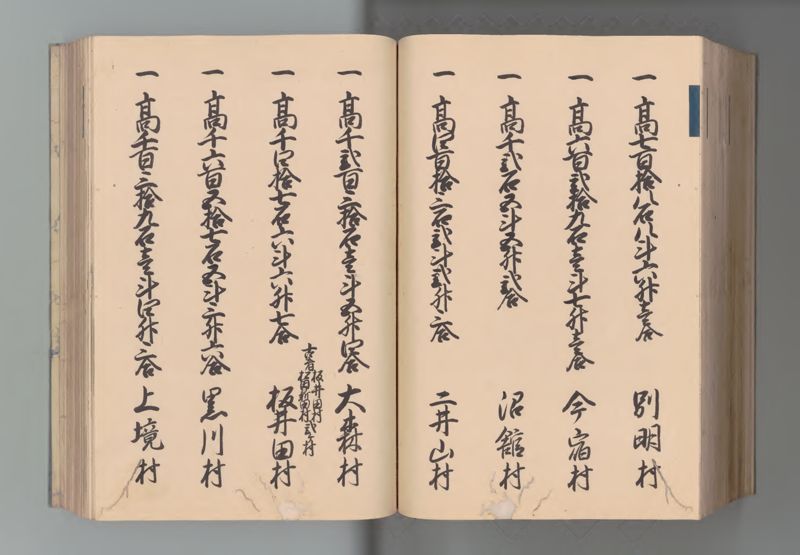 一 高七百拾八石八斗六升壱合 別明村
一 高六百弐拾九石壱斗七升壱合 今宿村
一 高千弐石五斗五升弐合 沼館村
一 高四百拾三石弐斗弐升三合 二井山村
一 高千弐百三拾石壱斗五升四合 大森村
一 高千四拾七石六斗六升七合 板井田村
古者板井田村
板井田新田村弐ケ村
一 高千六百五拾七石五斗三升六合 黒川村
一 高千百三拾九石壱斗四升三合 上境村